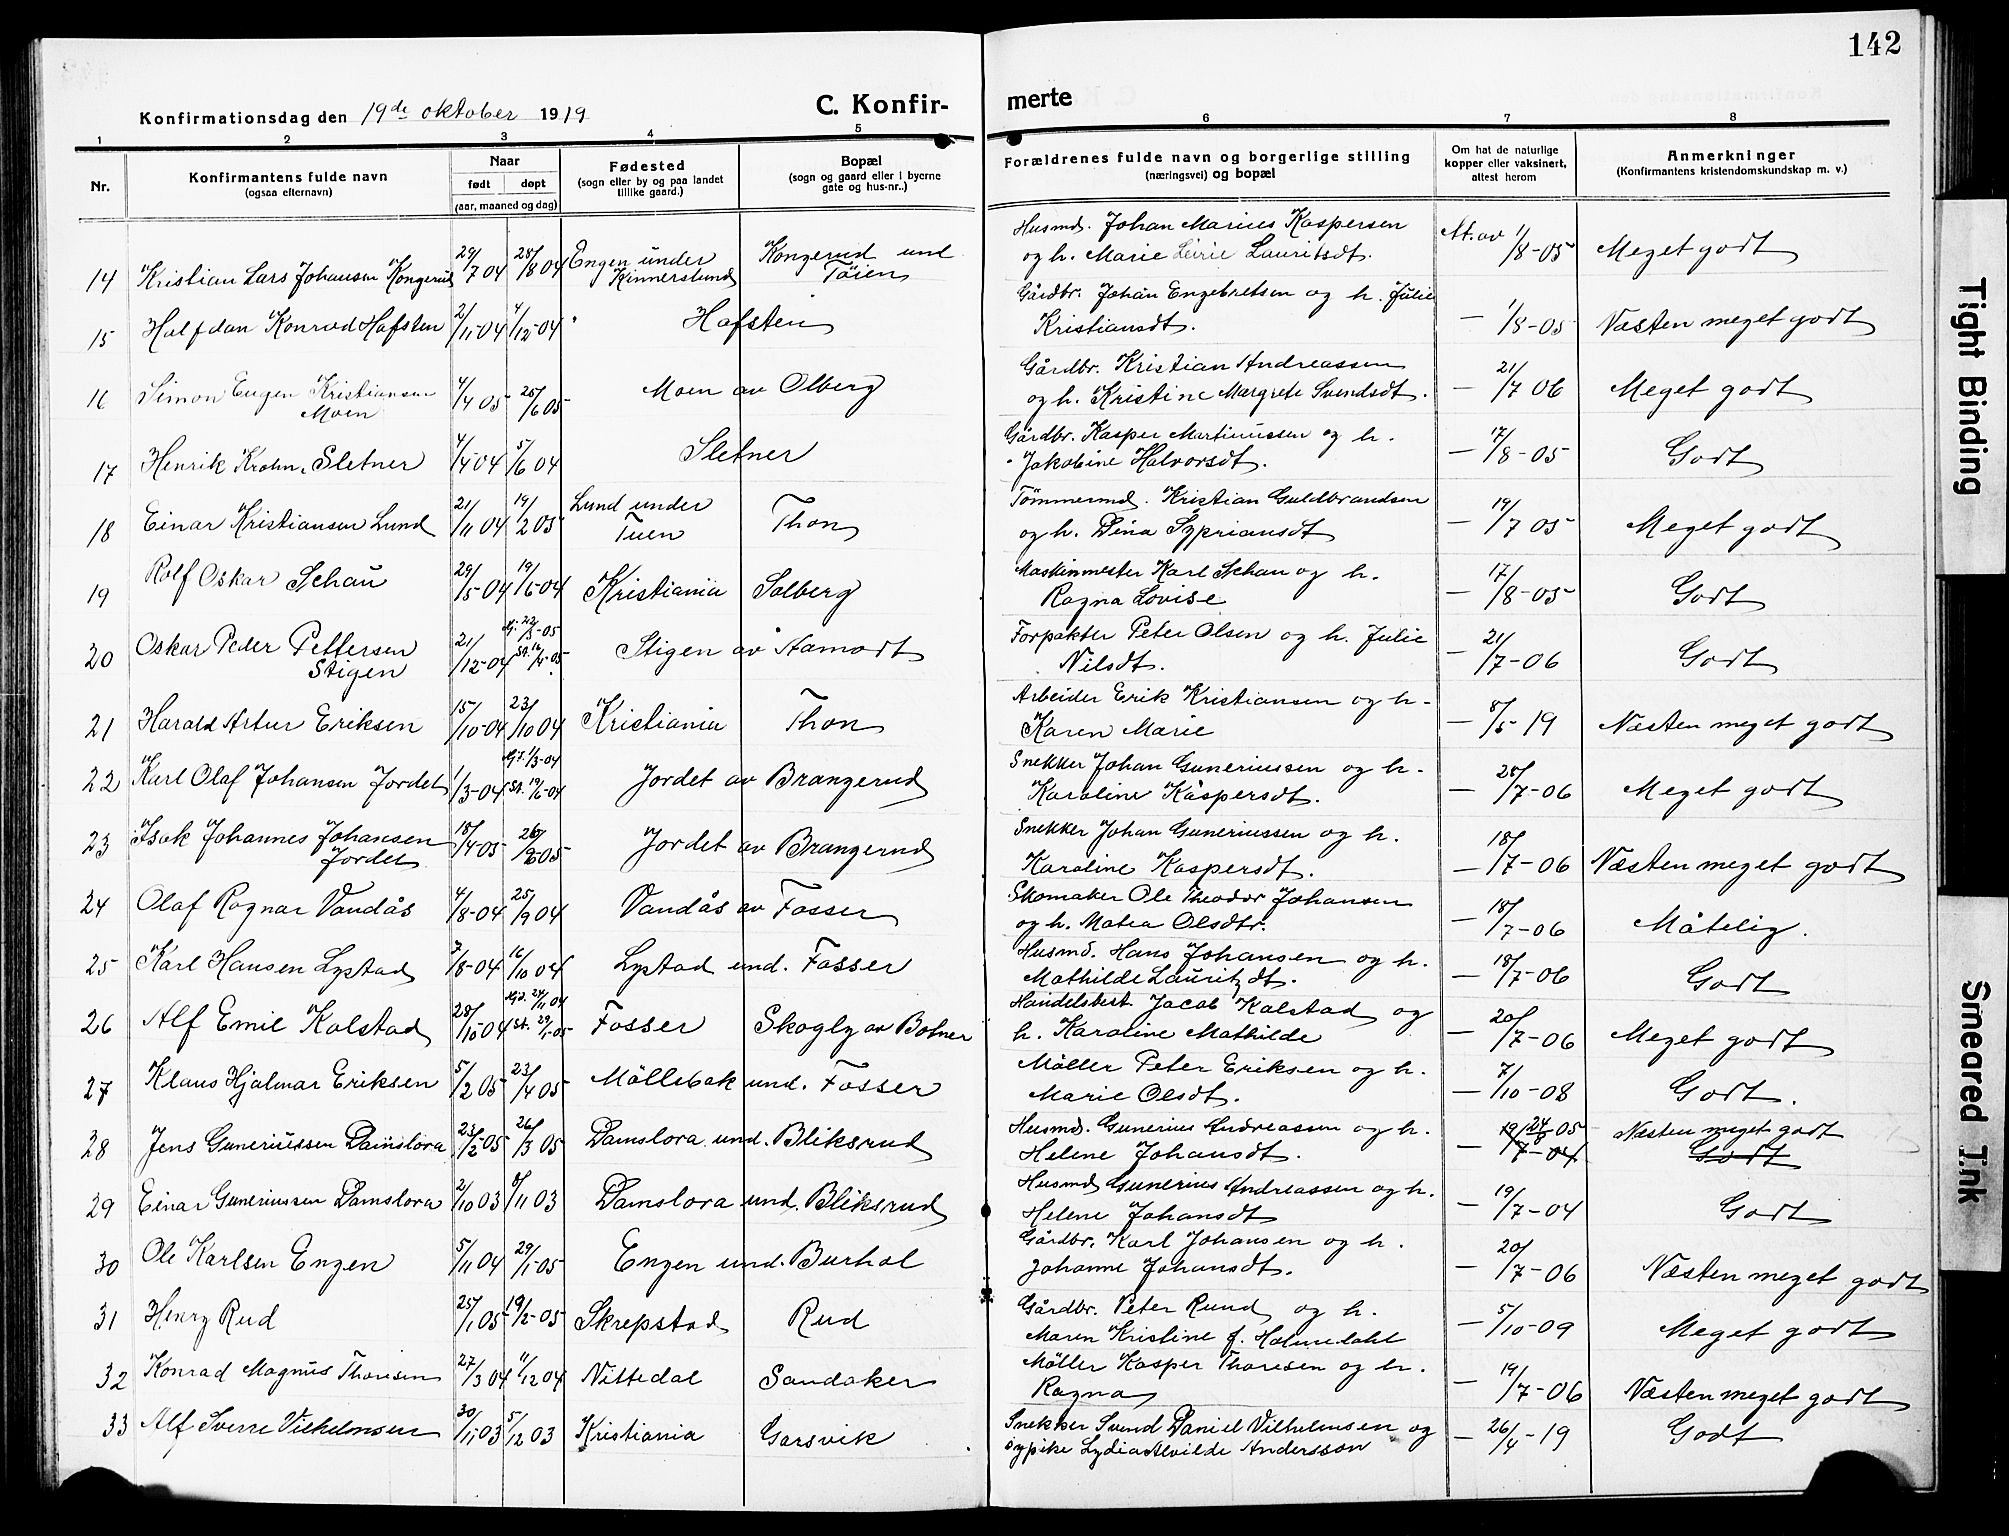 142
Konfirmationsdag den 19de oktober 1919
C. Konfir-
merte
1 2 3 4 5 6 7 8
Nr.
Konfirmantens fulde navn
(ogsaa efternavn)
Naar
født døpt
(aar, maaned og dag)
Fødested
(sogn eller by og paa landet
tillike gaard.)
Bopæl
(sogn og gaard eller i byerne
gate og hus-nr.)
Forældrenes fulde navn og borgerlige stilling
(næringsvei) og bopæl
Om hat de naturlige
kopper eller vaksinert,
attest herom
Anmerkninger
(Konfirmantens kristendomskundskap m. v.)
14 Kristian Lars Johansen Kongerud 29/7 04 28/8 04 Engen under Kinnerslund Kongerud und Tøien
Husmd. Johan Marius Kaspersen
og h. Marie Lauritsdt. At. av 1/8-05 Meget godt
15 Halfdan Konrad Hafsten 2/11-04 4/12-04 Hafsten
Gårdbr. Johan Engebretsen og h. Julie
Kristiansdt. — 1/8-05 Næsten meget godt
16 Simon Eugen Kristiansen Moen 4/4 05 25/6 05 Moen av Olberg
Gårdbr. Kristian Andreassen
og h. Kristine Margrete Svendsdt. — 21/7 06 Meget godt
17 Henrik Krohn Sletner 4/4-04 5/6 04 Sletner
Gårdbr. Kasper Martinussen og h.
Jakobine Halvorsdt. — 17/8-05 Godt
18 Einar Kristiansen Lund 21/11 04 19/2 05 Lund under Tuen Thon
Tömmermd. Kristian Guldbrandsen
og h. Dina Sypriansdt — 19/7 05 Meget godt
19 Rolf Oskar Schau 29/5-04 19/6-04 Kristiania Solberg
Maskinmester Karl Schau og h.
Ragna Lovise — 17/8-05 Godt
20 Oskar Peder Pettersen Stigen 21/12-04 Stigen av Aamodt
Forpakter Peter Olsen og h. Julie
Nilsdt. — 21/7-06 Godt
21 Harald Artur Eriksen 15/10-04 23/10 04 Kristiania Thon
Arbeider Erik Kristiansen og h-
Karen Marie — 8/5 19 Næsten meget godt
22 Karl Olaf Johansen Jordet 1/3-04 Hjd. 1/3-04 St. 19/6-04 Jordet av Brangerud
Snekker Johan Guneriussen og h-
Karoline Kaspersdt. — 28/7-06 Meget godt
23 Isak Johannes Johansen Jordet 18/4-05 Jordet av Brangerud
Snekker Johan Guneriussen og h.
Karoline Kaspersdt. — 18/7-06 Næsten meget godt
24 Olaf Ragnar Vandås 4/8-04 25/9 04 Vandås av Fosser
Skomaker Ole Theodor Johansen
og h. Matea Olsdtr. — 18/7-06 Måtelig.
25 Karl Hansen Lystad 7/8-04 16/10 04 Lystad und. Fosser
Husmd. Hans Johansen og h.
Mathilde Lauritzdt. — 18/7-06 Godt
26 Alf Emil Kolstad 28/10 04 Hjd. 24/11 04 St. 29/1-05 Fosser Skogly av Botner
Handelsbest. Jacob Kolstad og
h. Karoline Mathilde — 20/7-06 Meget godt
27 Klaus Hjalmar Eriksen 5/2 05 23/4 05 Möllebak und. Fosser
Möller Peter Eriksen og h.
Marie Olsdt. — 7/10-08 Godt.
28 Jens Guneriussen Damslora 23/2-05 26/3 05 Damslora und. Bliksrud
Husmd. Gunerius Andreassen og h.
Helene Johansdt. — 19/7-04 24/8-05 Næsten meget godt
Godt
29 Einar Guneriussen Damslora 2/10 03 8/11 03 Damslora und. Bliksrud
Husmd Gunerius Andreassen og h.
Helene Johansdt — 19/7-04 Godt
30 Ole Karlsen Engen 5/11 04 29/1-05 Engen und. Burhol
Gårdbr. Karl Johansen og h.
Johanne Johansdt. — 20/7-06 Næsten meget godt
31 Henry Rud 25/1 05 19/2-05 Skrepstad Rud
Gårdbr. Peter Rund og h.
Maren Kristine f. — 5/10-09 Meget godt
32 Konrad Magnus Thoresen 27/3 04 11/12 04 Nittedal Sandaker
Möller Kasper Thoresen og h.
Ragna — 19/7-06 Næsten meget godt
33 Alf Sverre Vilhelmsen 30/11 03 5/12 03 Kristiania Garsvik
Snekker Svend Daniel Vilhelmsen og
sypike Lydia Alvilde Andersson — 26/4-19 Godt
Tight Binding
Smeared Ink